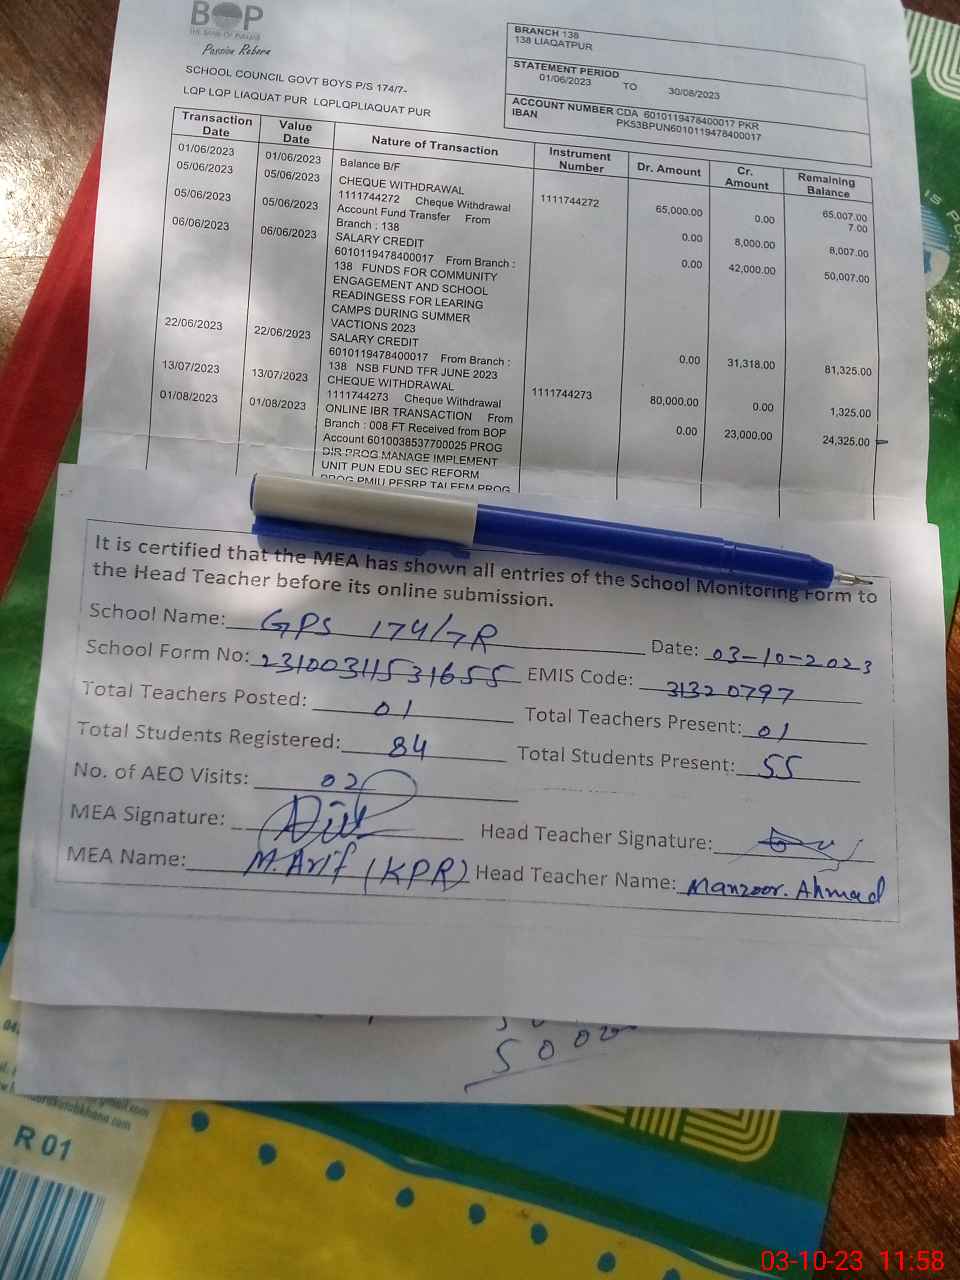 BOP
THE BANK OF PUNJAB
Passion Reborn
BRANCH 138
138 LIAQATPUR
STATEMENT PERIOD
01/06/2023 TO 30/08/2023
ACCOUNT NUMBER CDA 6010119478400017 PKR
IBAN PK53BPUN6010119478400017
SCHOOL COUNCIL GOVT BOYS P/S 174/7-
LQP LQP LIAQUAT PUR LQPLQPLIAQUAT PUR
Transaction Date Value Date Nature of Transaction Instrument Number Dr. Amount Cr. Amount Remaining Balance
01/06/2023 01/06/2023 Balance B/F 65,007.00
05/06/2023 05/06/2023 CHEQUE WITHDRAWAL 1111744272 65,000.00 0.00 7.00
1111744272 Cheque Withdrawal
05/06/2023 05/06/2023 Account Fund Transfer From 0.00 8,000.00 8,007.00
Branch : 138
06/06/2023 06/06/2023 SALARY CREDIT 0.00 42,000.00 50,007.00
6010119478400017 From Branch :
138 FUNDS FOR COMMUNITY
ENGAGEMENT AND SCHOOL
READINGESS FOR LEARING
CAMPS DURING SUMMER
VACTIONS 2023
22/06/2023 22/06/2023 SALARY CREDIT 0.00 31,318.00 81,325.00
6010119478400017 From Branch :
138 NSB FUND TFR JUNE 2023
13/07/2023 13/07/2023 CHEQUE WITHDRAWAL 1111744273 80,000.00 0.00 1,325.00
1111744273 Cheque Withdrawal
01/08/2023 01/08/2023 ONLINE IBR TRANSACTION From 0.00 23,000.00 24,325.00
Branch : 008 FT Received from BOP
Account 6010038537700025 PROG
DIR PROG MANAGE IMPLEMENT
UNIT PUN EDU SEC REFORM
PROG PMIU PESRP TALEEM PROG
It is certified that the MEA has shown all entries of the School Monitoring Form to
the Head Teacher before its online submission.
School Name: GPS 174/7R Date: 03-10-2023
School Form No: 23100311531655 EMIS Code: 31320797
Total Teachers Posted: 01 Total Teachers Present: 01
Total Students Registered: 84 Total Students Present: 55
No. of AEO Visits: 02
MEA Signature: Head Teacher Signature:
MEA Name: M. Arif (KPR) Head Teacher Name: Manzoor. Ahmad
R 01
03-10-23 11:58